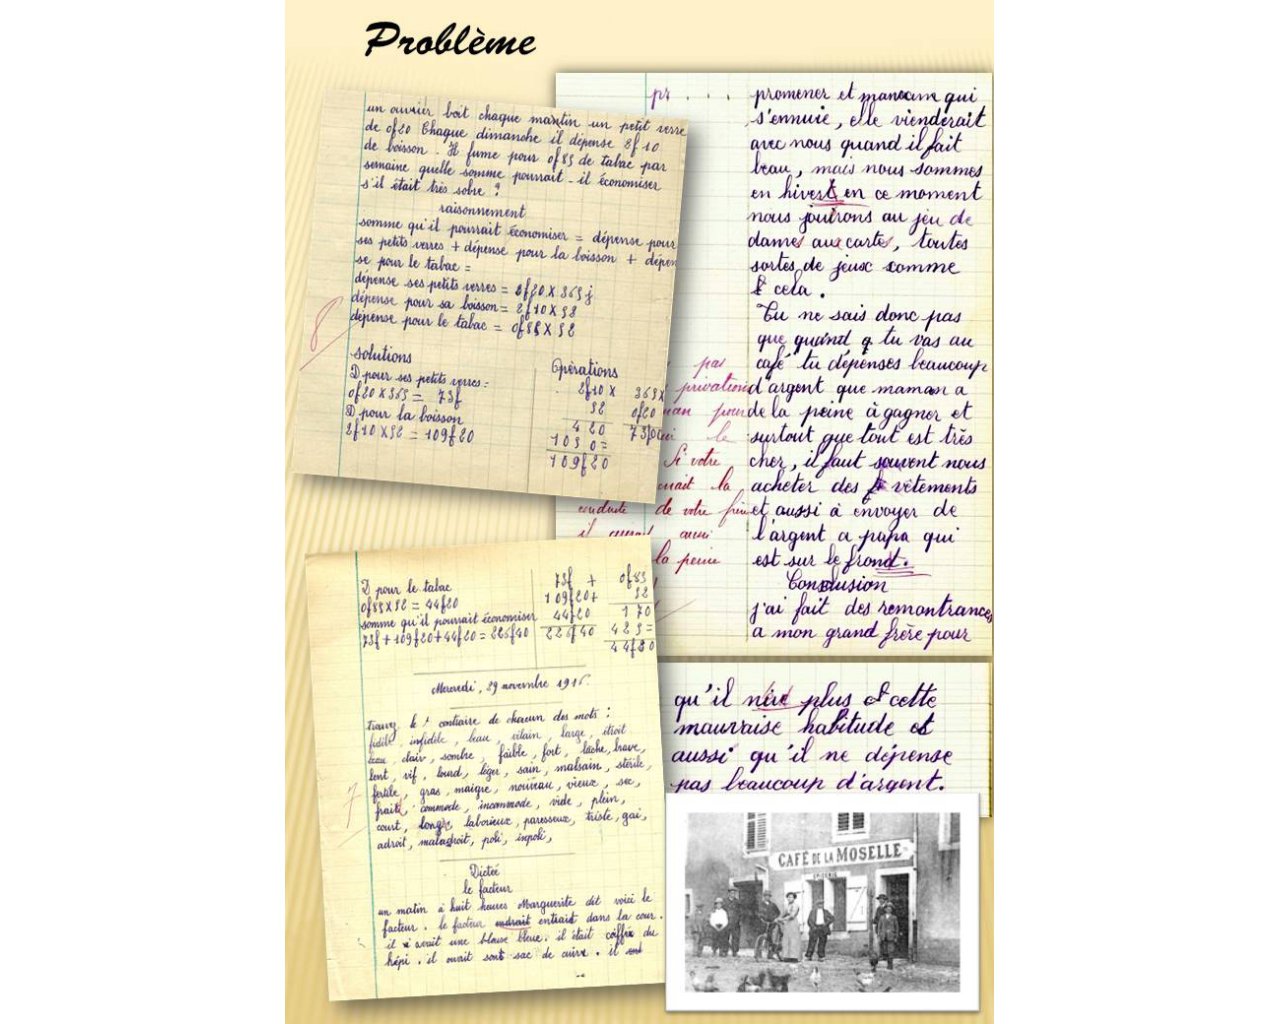 Problème
un ouvrier boit chaque mantin un petit verre
de 0f20 Chaque dimanche il dépense 2f10
de boisson. Il fume pour 0f85 de tabac par
semaine quelle somme pourrait-il économiser
s'il était très sobre ?
raisonnement
somme qu'il pourrait économiser = dépense pour
ses petits verres + dépense pour la boisson + dépen
se pour le tabac =
dépense ses petits verres = 0f20 x 365 j
dépense pour sa boisson = 2f10 x 52
dépense pour le tabac = 0f85 x 52
8
solutions
D pour ses petits verres =
0f20 x 365 = 73f
D pour la boisson
2f10 x 52 = 109f20
Opérations
2f10 x
52
4 20
105 0 =
109f20
365 x
0f20
73f0
D pour le tabac
0f85 x 52 = 44f20
somme qu'il pourrait économiser
73f + 109f20 + 44f20 = 226f40
73f +
109f20 +
44f20
226f40
0f85
52
1 70
4 25 =
44f20
Mercredi, 29 novembre 1916.
trouvez le contraire de chacun des mots :
fidèle, infidèle, beau, vilain, large, étroit
clair, sombre, faible, fort, lâche, brave,
lent, vif, lourd, léger, sain, malsain, stérile,
fertile, gras, maigre, nouveau, vieux, sec,
frait, commode, incommode, vide, plein,
court, longe, laborieux, paresseux, triste, gai,
adroit, maladroit, poli, inpoli,
7
Dictée
le facteur
un matin à huit heures Marguerite dit voici le
facteur. le facteur entrait dans la cour.
il avait une blouse bleue. il était coiffé du
képi. il avait sont sac de cuire. il
pr . . . .
promener et maman qui
s'ennuie, elle vienderait
avec nous quand il fait
beau, mais nous sommes
en hivert en ce moment
nous jouirons au jeu de
dames aux cartes, toutes
sortes de jeux comme
cela.
Tu ne sais donc pas
que quand tu vas au
café tu dépenses beaucoup
d'argent que maman a
de la peine à gagner et
surtout que tout est très
cher, il faut souvent nous
acheter des vêtements
et aussi à envoyer de
l'argent a papa qui
est sur le front.
Conclusion
j'ai fait des remontrances
a mon grand frère pour
pas
privation
pour
le
Si votre
la
conduite de votre
aussi
la peine
qu'il plus cette
mauvaise habitude et
aussi qu'il ne dépense
pas beaucoup d'argent.
CAFÉ DE LA MOSELLE
EPICERIE